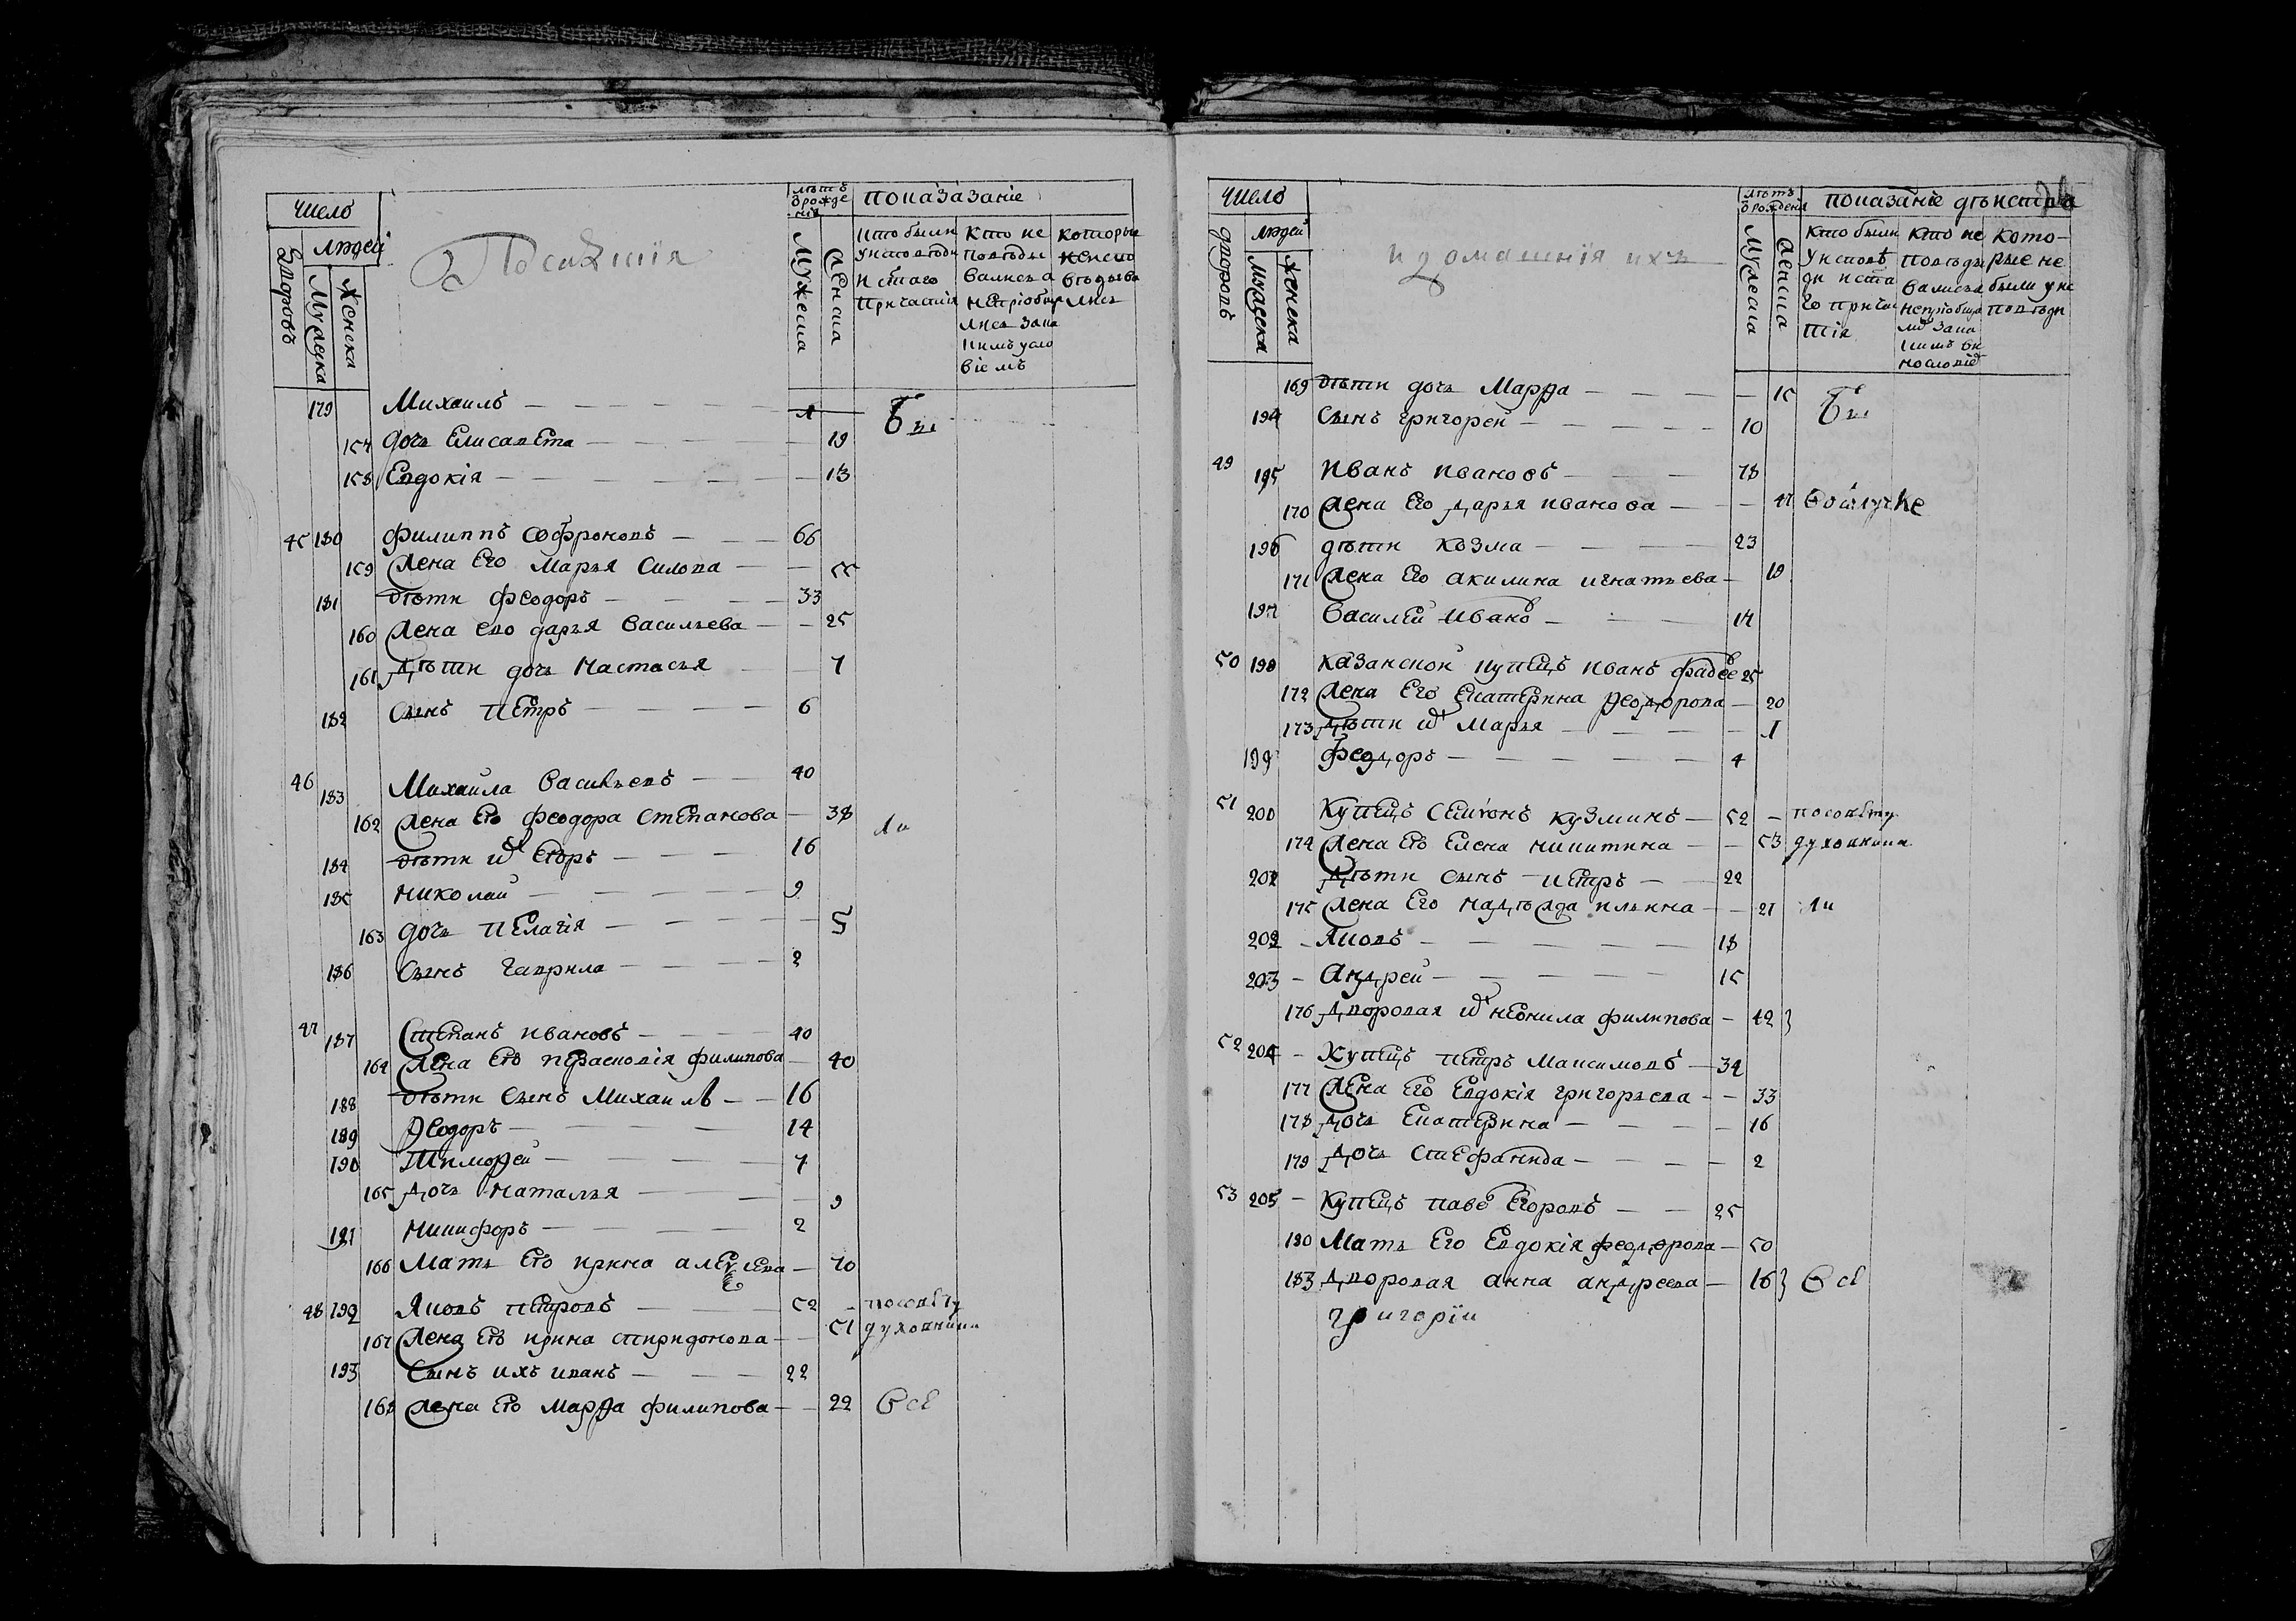 Число
людей
Дворовъ
Мужска
Женска
Посадскія
лѣтъ
ѿ рожде
нія
Мужеска
женска
показазаніе
кто были
у исповѣди
и с͠таго
причастія
кто не
повѣды
вались а
не пріобща
лись за ка
кимъ усло
віемъ
которые
не испо
вѣдыва
лись
179 Михаилъ — 1 Бы
157 дочь Елисавета — 19
158 Евдокія — 13
45 180 Филиппъ Софроновъ — 66
159 Жена Его Марья Силова — 55
181 дѣти Феодоръ — 33
160 Жена ево дарья Васильева — 25
161 Дѣти дочь Настасья — 7
182 Сынъ Петръ — 6
46 183 Михаила Васильевъ — 40
162 Жена Его Феодора Степанова — 38 ли
184 дѣти ихъ Егоръ — 16
185 Николай — 9
163 дочь Пелагія — 5
186 Сынъ Гаврила — 2
47 187 Степанъ Ивановъ — 40
164 Жена Его Парасковія Филипова — 40
188 дѣти Сынъ Михаилъ — 16
189 Ѳеодоръ — 14
190 Тимоѳей — 7
165 Дочь Наталья — 9
191 Никифоръ — 2
166 Мать Его Ирина алеѯіева — 70
48 192 Яковъ Петровъ — 52 — по совѣту
167 Жена Его Ирина Спиридонова — 51 духовника
193 Сынъ ихъ иванъ — 22
168 Жена Его Марѳа Филипова — 22 Всѣ
Число
людей
дворовъ
Мужеска
Женска
и домашнія ихъ
лѣтъ
ѿ рожденія
Мужеска
женска
показаніе дѣйства
Кто были
у исповѣ
ди и с͠та
го прича
стія
Кто не
повѣды
вались а
не пріобща
ли за ка
кимъ ви
нословіе
Кото-
рые не
были у ис
повѣди
169 дѣти дочь Марѳа — 15 Бы
194 Сынъ Григорей — 10
49 195 Иванъ Ивановъ — 78
170 Жена Его Дарья Иванова — 47 Вотлучке
196 дѣти Козма — 23
171 Жена Его Акилина Игнатьева — 19
197 Василей Иванов — 14
50 198 Казанской купецъ Иванъ Фадеев 25
172 Жена Его Екатерина Ѳеодорова — 20
173 Дѣти их Марья — 1
199 Федоръ — 4
51 200 Купецъ Семіонъ Кузминъ — 52 — по совѣту
174 Жена Его Елена Никитина — 53 духовника
201 Дѣти сынъ Петръ — 22
175 Жена Его Надѣжда Ильина — 21 ли
202 – Яковъ — 18
203 – Андрей — 15
176 Дворовая их Неонила Филипова — 42 }
52 204 – Купецъ Петръ Максимовъ — 34
177 Жена Его Евдокія Григорьева — 33
178 Дочь Екатерина — 16
179 Дочь Стефанида — 2
53 205 – Купецъ Паве Егоровъ — 25
180 Мать Его Евдокія Феодорова — 50
183 Дворовая Анна Андреева — 16 } Всѣ
григоріи